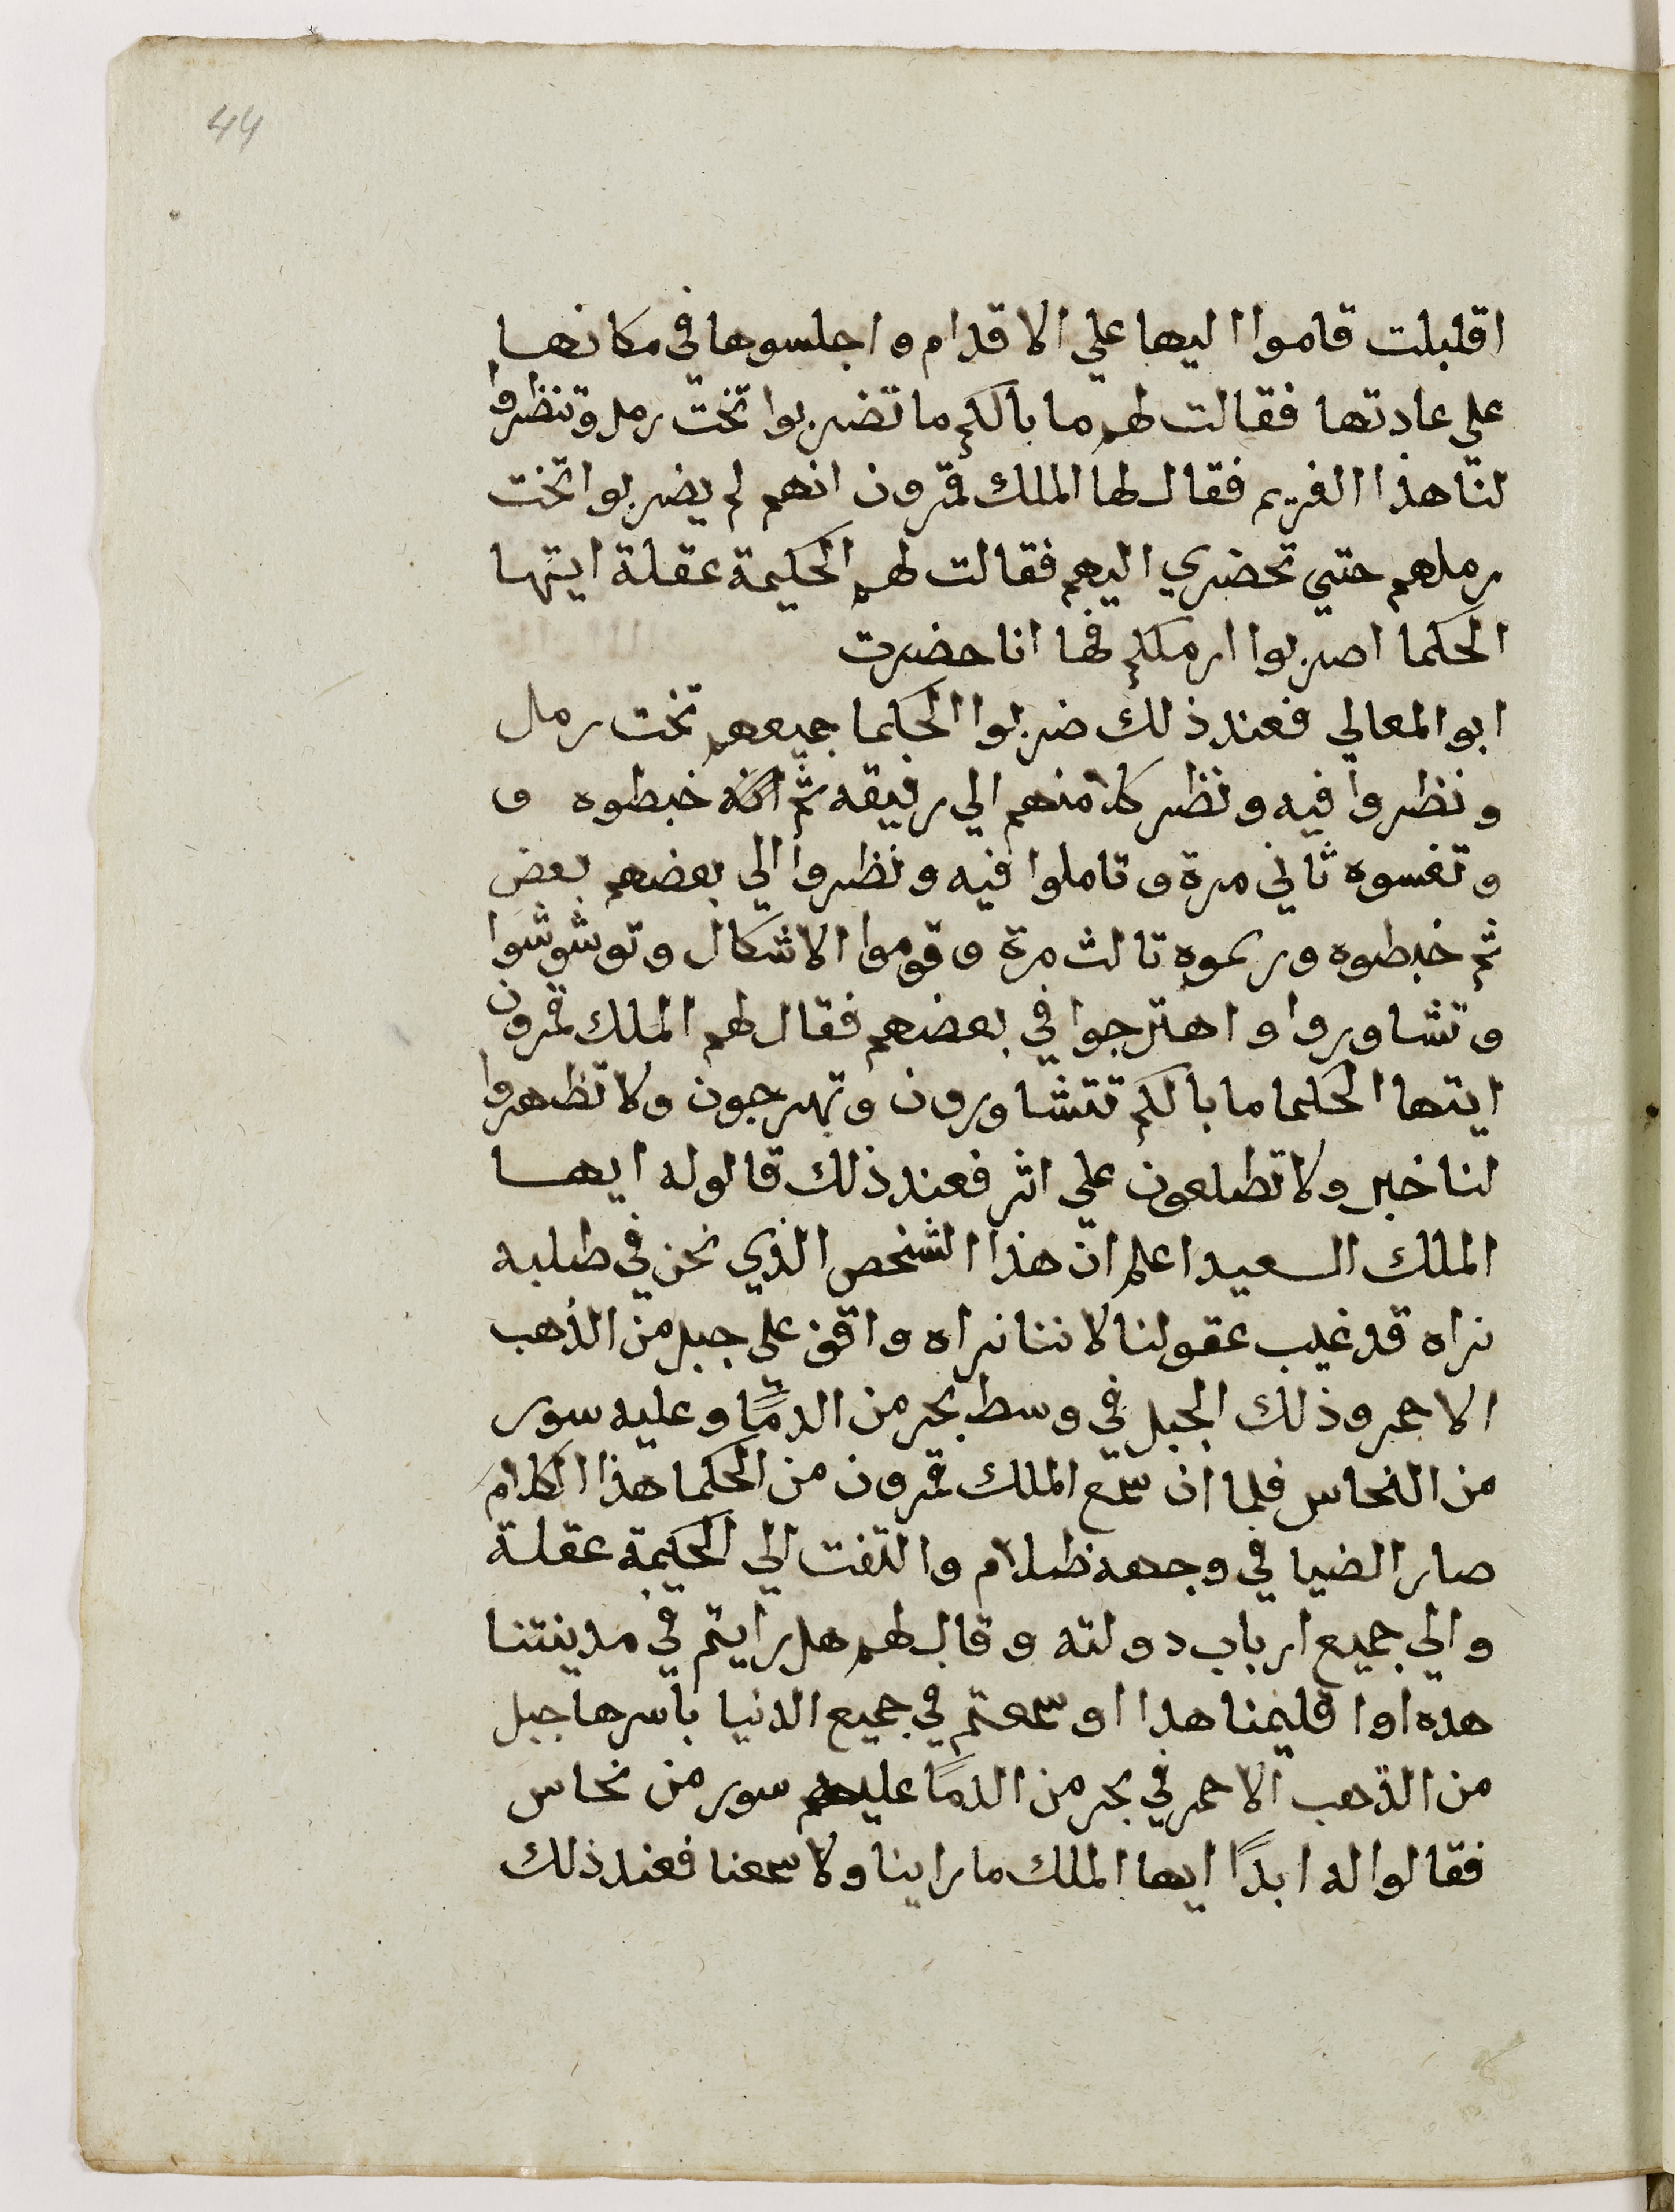 44
اقلبلت قاموا اليها علي الاقدام واجلسوها في مكانها
علي عادتها فقالت لهم ما بالكم ما تضربوا تخت رمل وتنظروا
لنا هذا الغريم فقال لها الملك قمرون انهم لم يضربوا تخت
رملهم حتي تحضري اليهم فقالت لهم الحكيمة عقلة ايتها
الحكما اصربوا ارملكم فها انا حضرت
ابو المعالي فعند ذلك ضربوا الحكما جميعهم تخت رمل
ونظروا فيه ونظر كلا منهم الي رفيقه ثم انه خبطوه و
وتفسوه ثاني مرة وتاملوا فيه ونظروا الي بعضهم بعض
ثم خبطوه وريموه تالث مرة وقوموا الاشكال وتوشوشوا
وتشاوروا واهترجوا في بعضهم فقال لهم الملك قمرون
ايتها الحكما ما بالكم تتشاورون وتهرجون ولا تظهروا
لنا خبر ولا تطلعون علي اثر فعند ذلك قالوله ايها
الملك السعيد اعلم ان هذا الشخص الذي نحن في طلبه
نراه قد غيب عقولنا لاننا نراه واقف علي جبل من الذهب
الاحمر وذلك الجبل في وسط بحر من الدمًا وعليه سور
من النحاس فلما ان سمع الملك قمرون من الحكما هذا الكلام
صار الضيا في وجهه ظلام والتفت الي الحكيمة عقلة
والي جميع ارباب دولته وقال لهم هل رايتم في مدينتنا
هده اوا قليمنا هدا او سمعتم في جميع الدنيا باسرها جبل
من الذهب الاحمر في بحر من الدمًا عليهم سور من نحاس
فقالوا له ابدًا ايها الملك ما راينا ولا سمعنا فعند ذلك